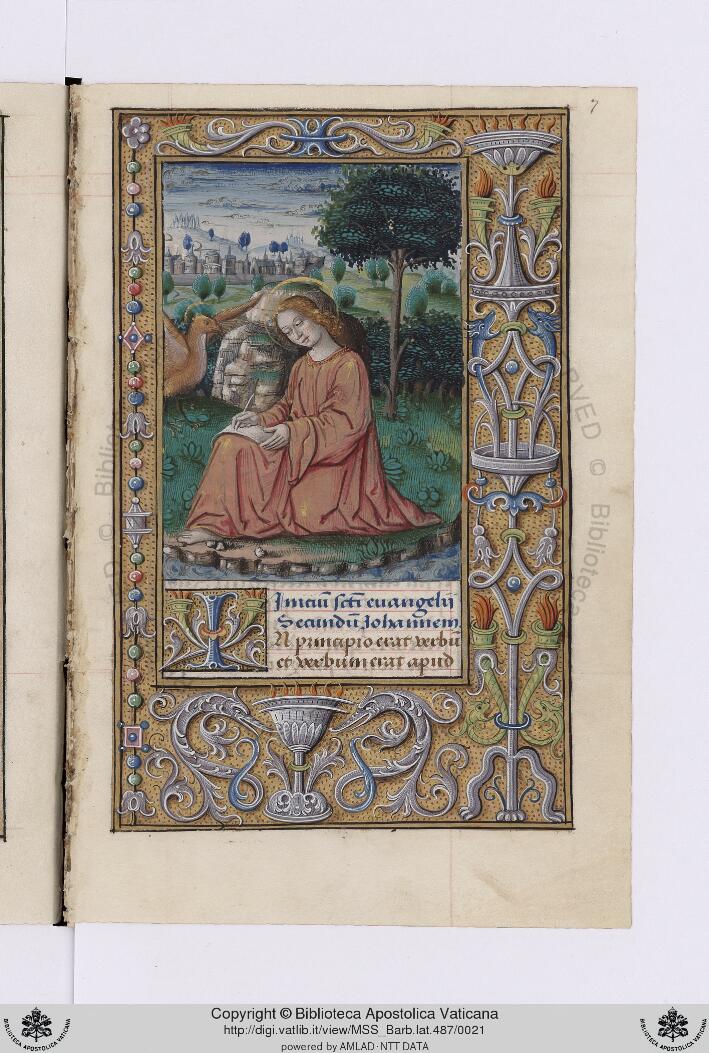 7
Iniciū sc̄ti euangelij
Secundū Johannem
IN principio erat verbū
et verbum erat apud
Copyright © Biblioteca Apostolica Vaticana
http://digi.vatlib.it/view/MSS_Barb.lat.487/0021
powered by AMLAD·NTT DATA
BIBLIOTECA APOSTOLICA VATICANA
BIBLIOTECA APOSTOLICA VATICANA